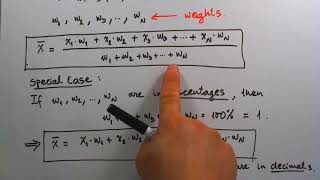 w₁, w₂, w₃, ..., w_N weights.
x̄ = (x₁·w₁ + x₂·w₂ + x₃·w₃ + ... + x_N·w_N) / (w₁ + w₂ + w₃ + ... + w_N)
Special Case :
If w₁, w₂, ..., w_N are in percentages, then
w₁ + w₃ + ... + w_N = 100% = 1.
⇒ x̄ = x₁·w₁ + x₂·w₂ + x₃ w_N
are in decimals.